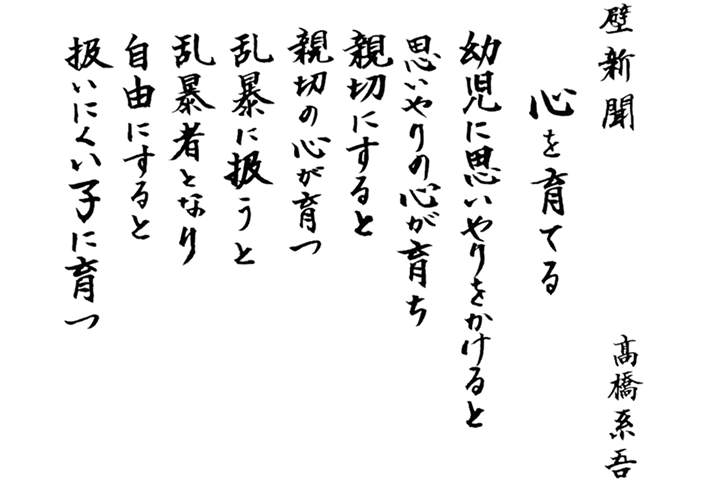 壁新聞
髙橋系吾
心を育てる
幼児に思いやりをかけると
思いやりの心が育ち
親切にすると
親切の心が育つ
乱暴に扱うと
乱暴者となり
自由にすると
扱いにくい子に育つ